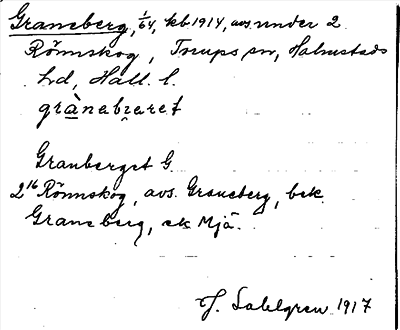 Graneberg, 1/64, kb. 1914, avs. under 2
Rönnskog, Torups sn, Halmstads
hd, Hall. l.
grànabʒaret
Granberget G
2¹⁶ Rönnskog, avs. Graneberg, bek.
Graneberg, ek Mjä.
J. Sahlgren 1917